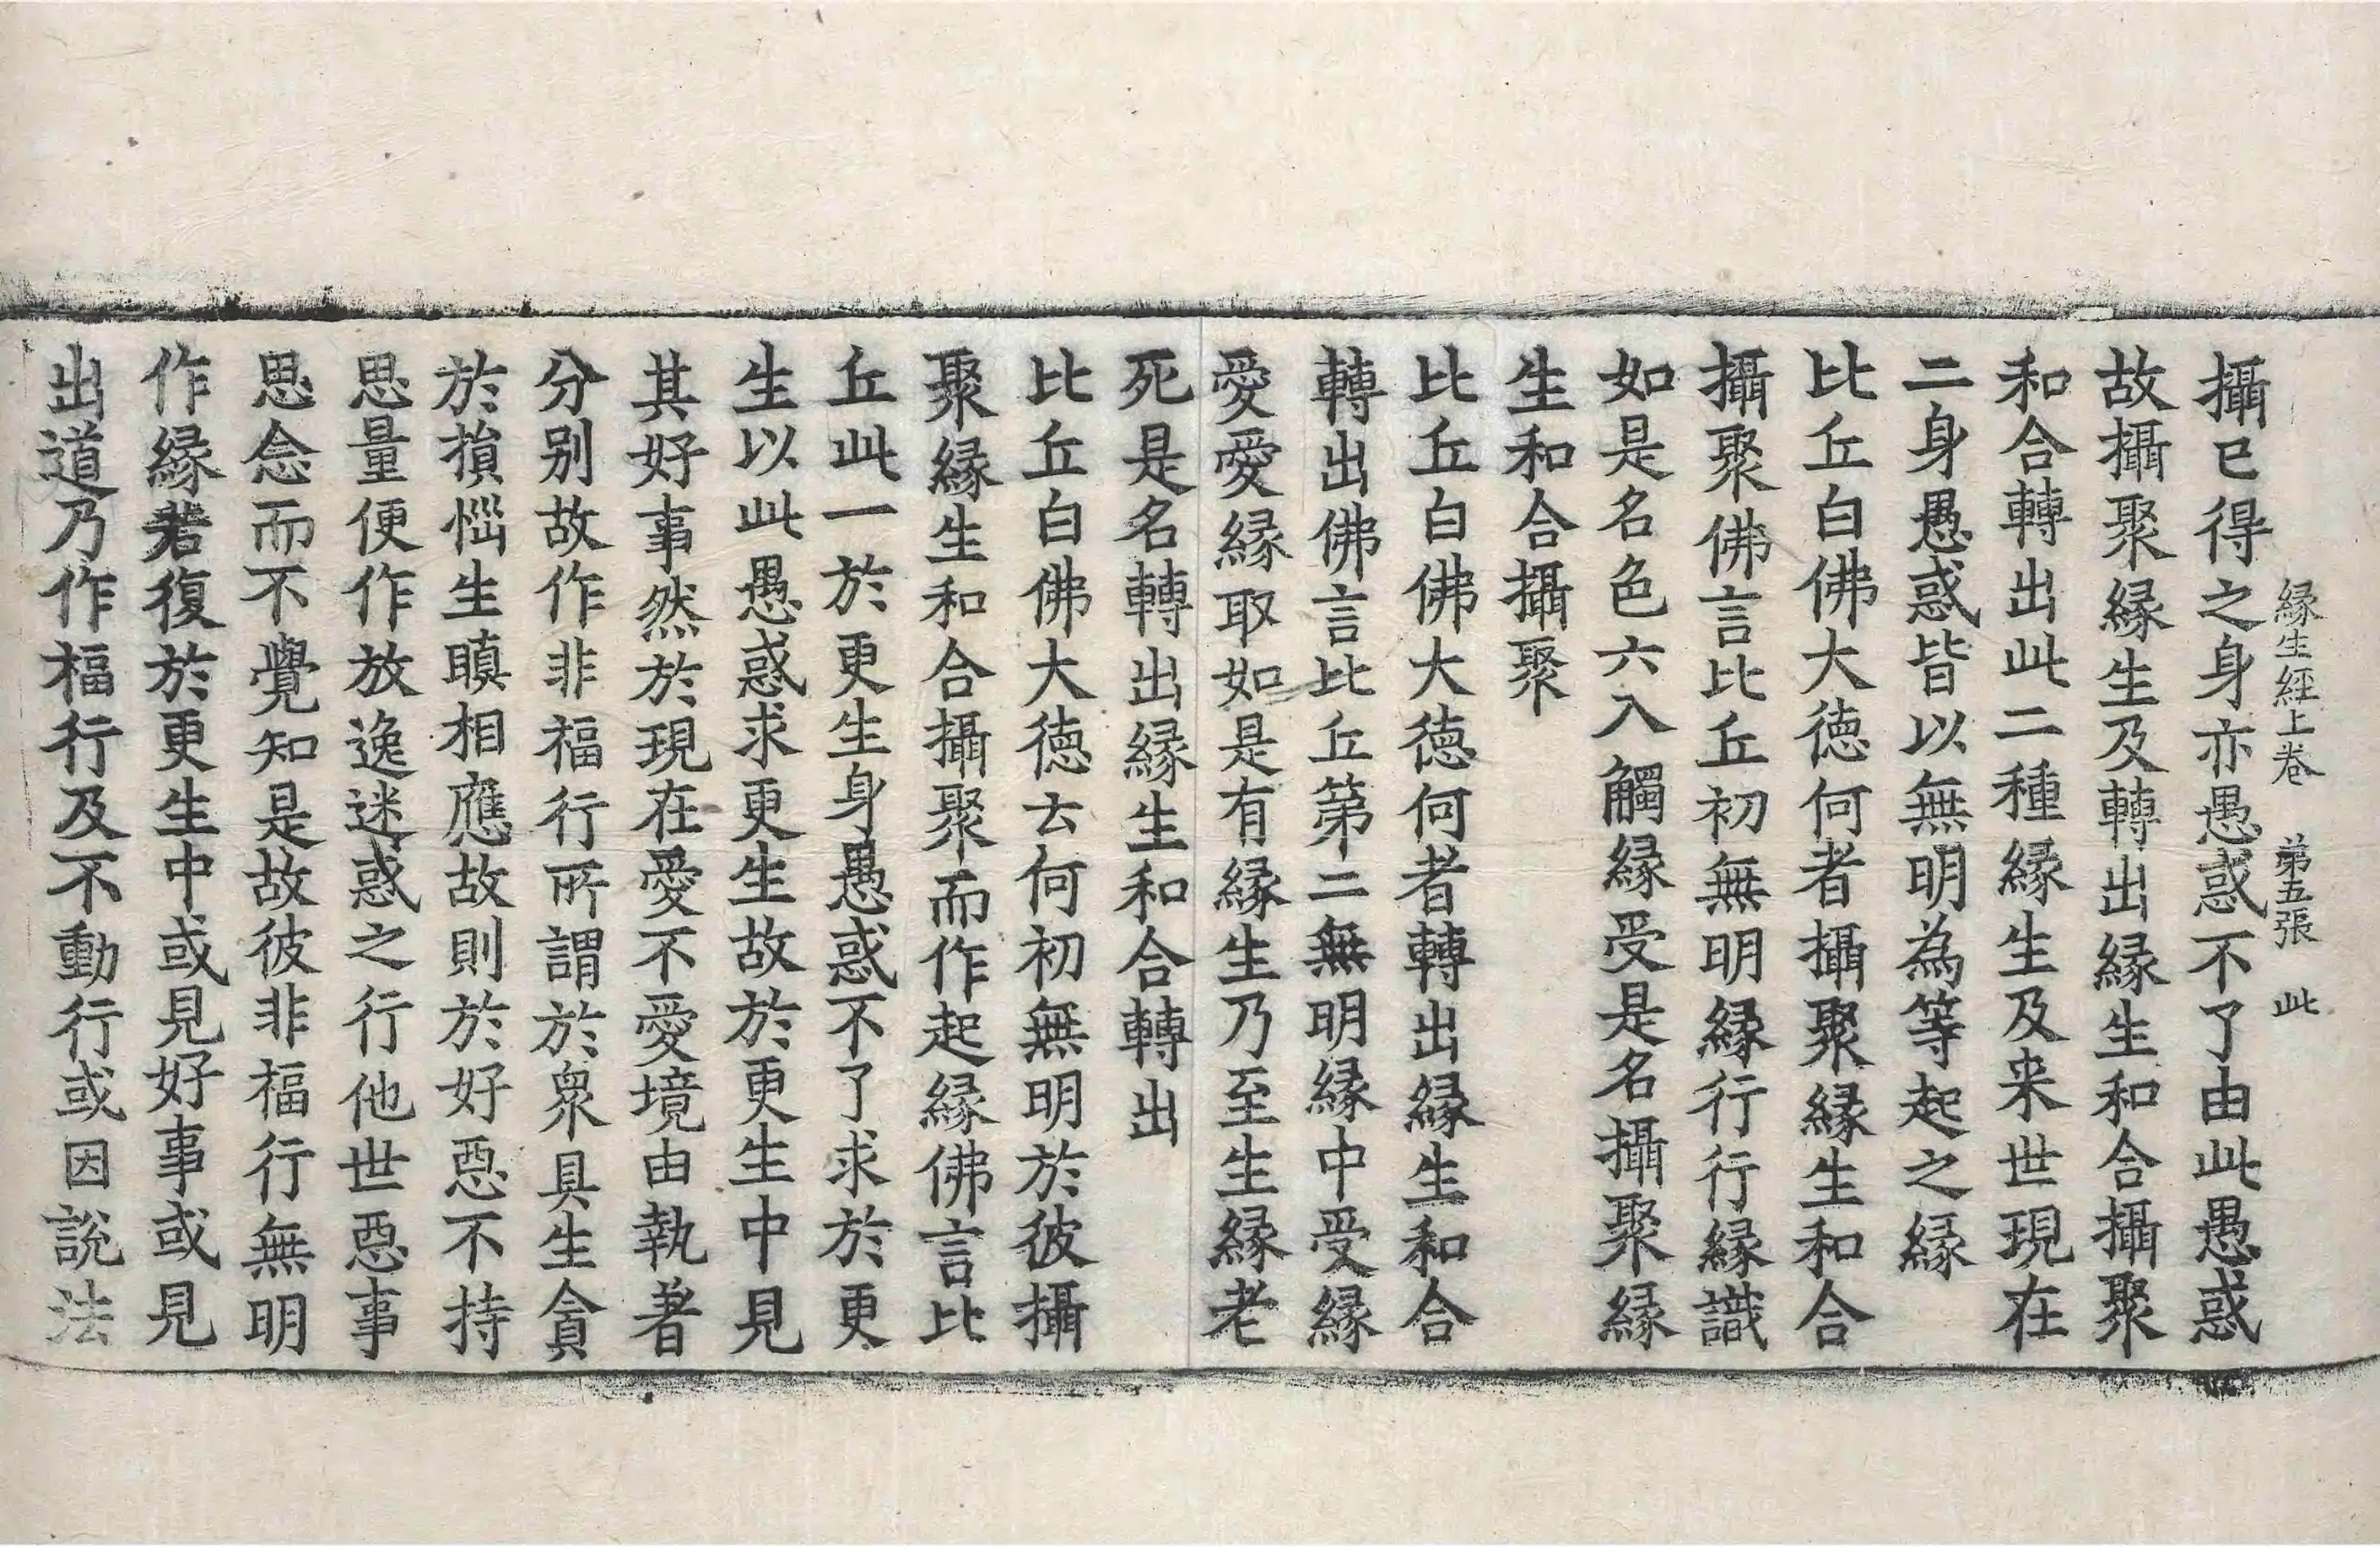 緣生經上卷 第五張 此
攝已得之身亦愚惑不了由此愚惑
故攝聚緣生及轉出緣生和合攝聚
和合轉出此二種緣生及来世現在
二身愚惑皆以無明為等起之緣
比丘白佛大德何者攝聚緣生和合
攝聚佛言比丘初無明緣行行緣識
如是名色六入觸緣受是名攝聚緣
生和合攝聚
比丘白佛大德何者轉出緣生和合
轉出佛言比丘第二無明緣中受緣
愛愛緣取如是有緣生乃至生緣老
死是名轉出緣生和合轉出
比丘白佛大德云何初無明於彼攝
聚緣生和合攝聚而作起緣佛言比
丘此一於更生身愚惑不了求於更
生以此愚惑求更生故於更生中見
其好事然於現在愛不愛境由執著
分別故作非福行所謂於衆具生貪
於損惱生瞋相應故則於好惡不持
思量便作放逸迷惑之行他世惡事
思念而不覺知是故彼非福行無明
作緣若復於更生中或見好事或見
出道乃作福行及不動行或因說法